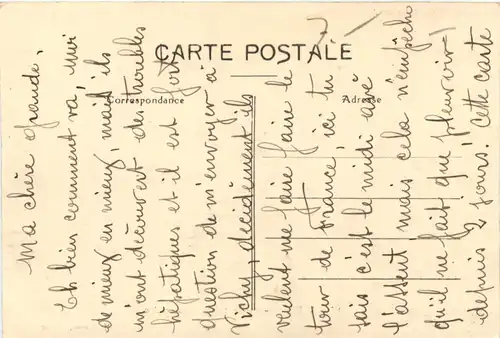 CARTE POSTALE
Correspondance
Adresse
Ma chère grande,
Eh bien comment va, moi
de mieux en mieux, mais ils
m'ont découvert des troubles
hépatiques et il est fort
question de m'envoyer à
Vichy, décidément ils
veulent me faire faire le
tour de France, ici tu
sais c'est le midi avé
l'assent mais cela n'empêche
qu'il ne fait que pleuvoir
depuis 2 jours, cette carte